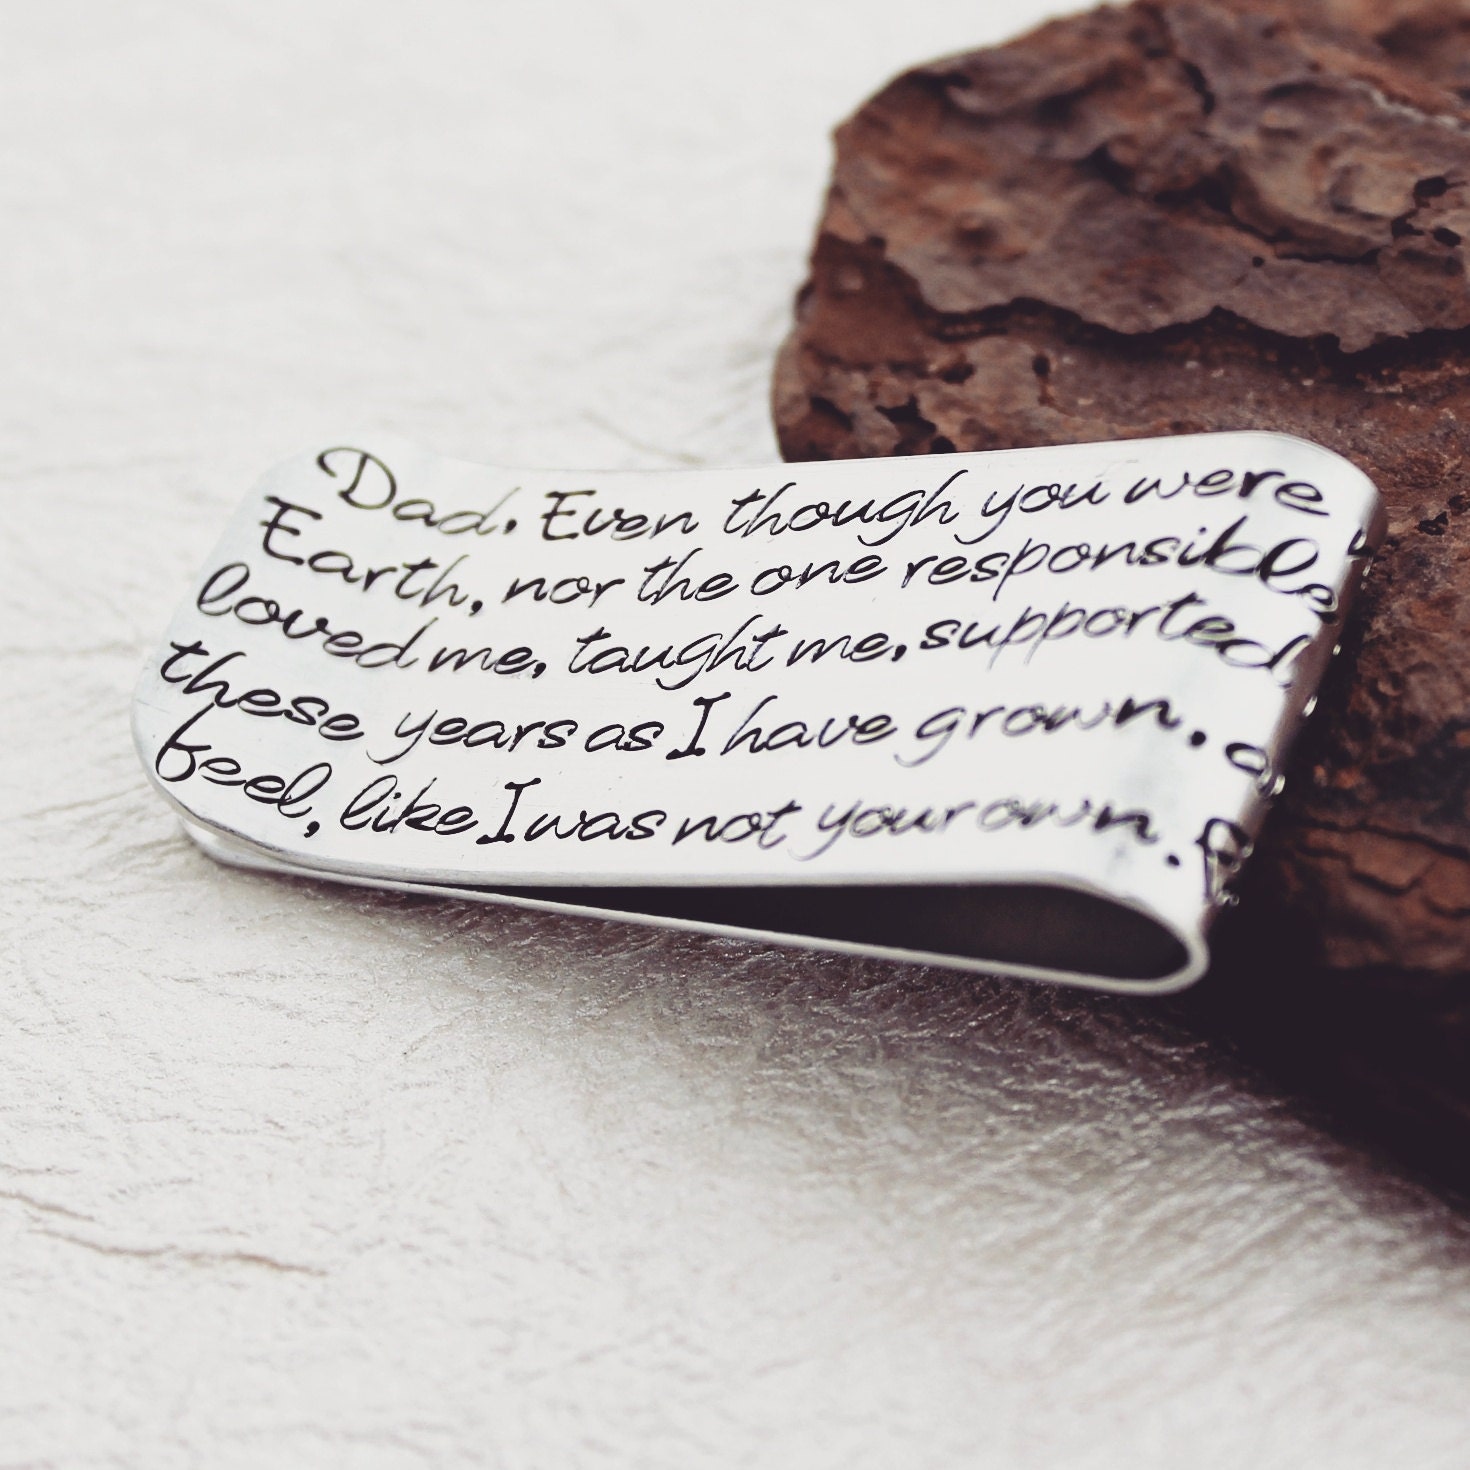 Dad. Even though you were
Earth, nor the one responsible
loved me, taught me, supported
these years as I have grown.
feel, like I was not your own.